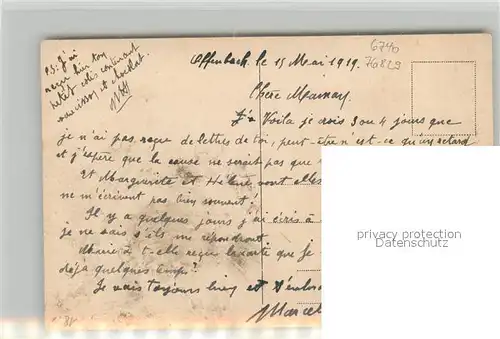 P.S. J'ai
reçu hier ton
petit colis contenant
saucisson et chocolat.
6740
76829
Offenbach, le 15 Mai 1919.
Chère Maman,
Voila je crois 3 ou 4 jours que
je n'ai pas reçu de lettres de toi, peut-être n'est-ce qu'un retard
et j'espère que la cause ne serait pas que
Et Marguerite et Hélène vont elles
ne m'écrivent pas bien souvent!
Il y a quelques jours j'ai écris à
je ne sais s'ils me répondront
Marie a-t-elle reçu la carte que je
déjà quelques temps?
Je vais toujours bien et t'embr
Marcel
privacy protection
Datenschutz